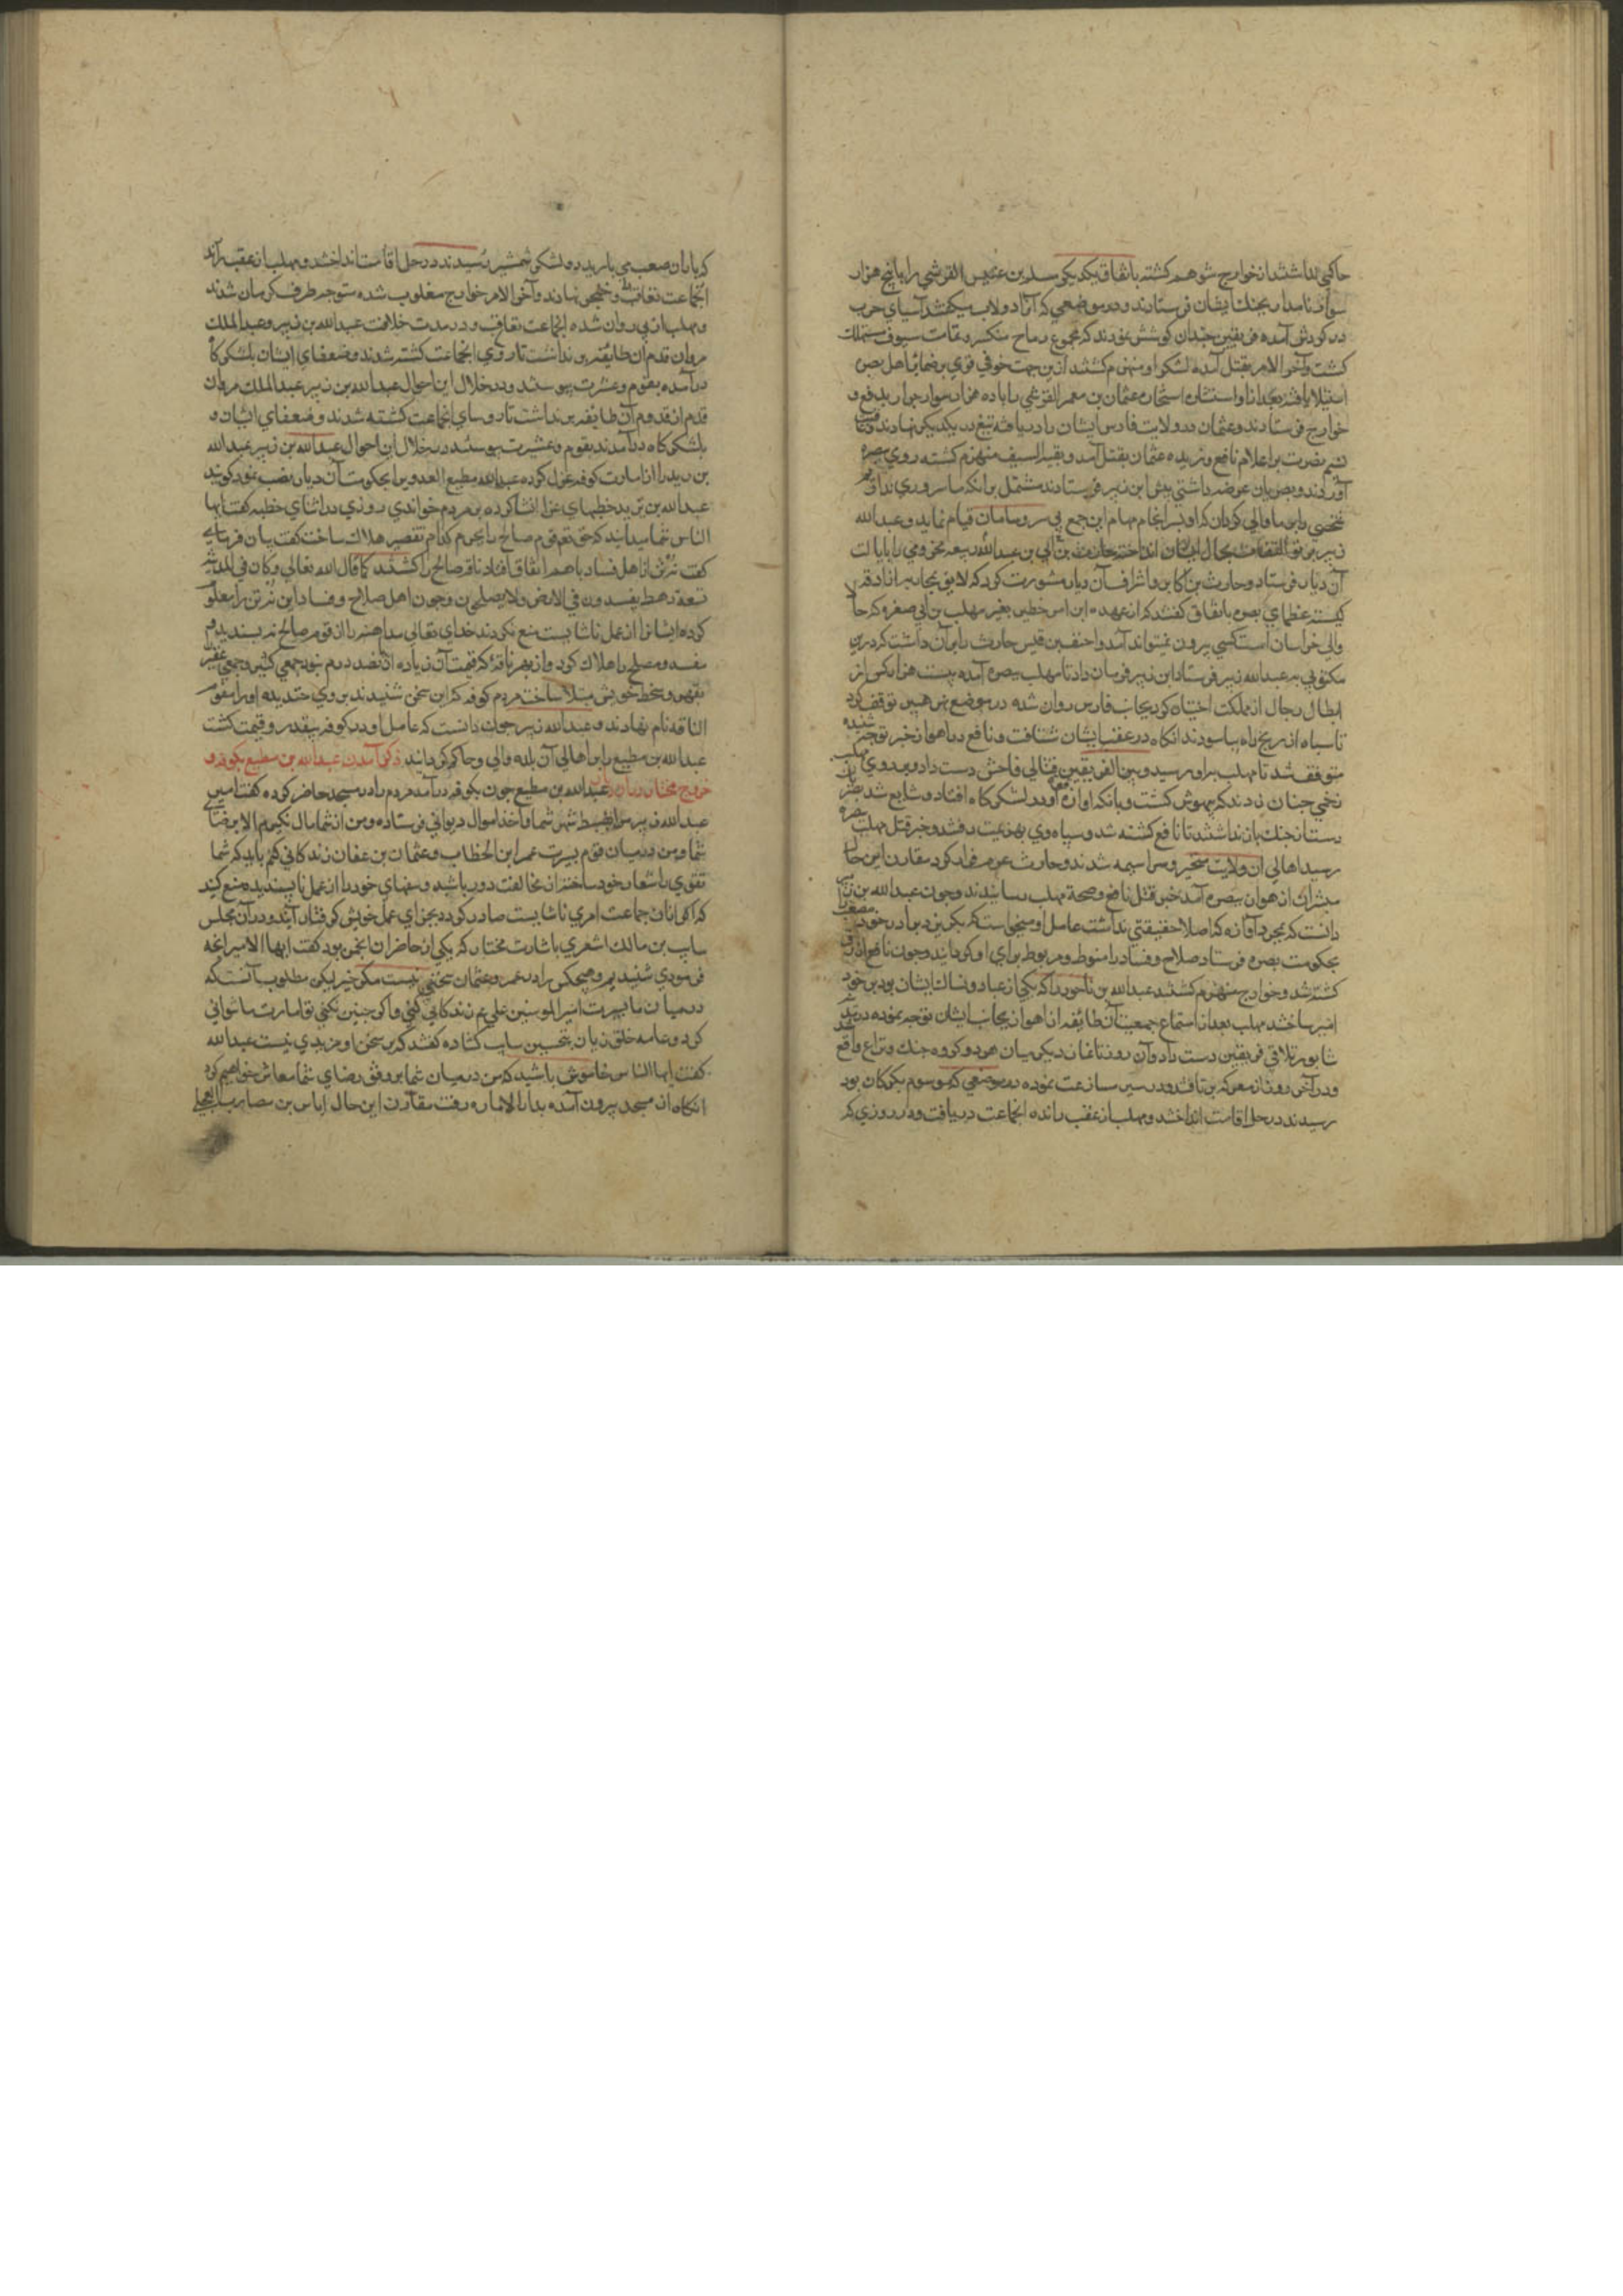 حاکمی نداشتند از خوارج متوهم کشته باتفاق یکدیکر مسلم بن عنبس القرشی را با پنج هزار
سوار نامدار بجنك ایشان فرستادند و در موضعی که آنرا دولاب میکفتند آسیای حرب
در کردش آمده فریقین چندان کوشش نمودند که مجموع رماح منکسر و تمامت سیوف مستهلك
کشت و آخر الامر بقتل آمده لشکر او منهزم کشتند ازین جهت خوفی قوی بر ضمایر اهل بصره
استیلا یافته بعد از استشاره عثمان بن معمر القرشی را با ده هزار سوار جرار بدفع
خوارج فرستادند و عثمان در ولایت فارس ایشان را دریافته تیغ در یکدیکر نهادند
نسیم نصرت بر اعلام نافع وزیده عثمان بقتل آمد و بقیة السیف منهزم کشته روی ببصره
آوردند و بصریان عرضه داشتی پیش ابن زبیر فرستادند مشتمل برانکه ما سروری نداریم
شخصی را برین ما والی کردان که او بسر انجام مهام این جمع بی سر و سامان قیام نماید و عبدالله
زبیر پرتو التفات بحال ایشان انداخته حارث بن ابی بن عبدالله ربیعه مخزومی را بایالت
آن دیار فرستاد و حارث بن اکابر و اشراف آن دیار مشورت کرد که لایق محاربه ازارقه
کیست عظمای بصره باتفاق کفتند که از عهده این امر خطیر بغیر مهلب بن ابی صفره که حالا
والی خراسان است کسی بیرون نمیتواند آمد و احنف بن قیس حارث را بران داشت که درین
مکتوبی بعبدالله زبیر فرستاد ابن زبیر فرمان داد تا مهلب ببصره آمده بیست هزار کس از
ابطال رجال از مملکت اختیار کرد بجانب فارس روان شده در موضع نهر همین توقف کرد
تا سپاه از رنج راه بیاسودند انکاه در عقب ایشان شتافت و نافع در اهواز خبر توجه شنیده
متوقف شد تا مهلب براو رسید و بین الفریقین قتالی فاحش دست داد و بر روی مهلب
زخمی چنان زدند که بیهوش کشت و بانکه آوازه در لشکرکاه افتاد و شایع شد
دست از جنك باز نداشتند تا نافع کشته شد و سپاه وی بهزیمت رفتند و خبر قتل مهلب ببصره
رسید اهالی ان ولایت متحیر و سراسیمه شدند و حارث عزم فرار کرد مقارن این حال
مبشران از اهواز ببصره آمد خبر قتل نافع و صحة مهلب رسانیدند و چون عبدالله بن زبیر
دانست که بمجرد آوازه که اصلا حقیقتی نداشت عامل او میخواست که بکریزد برادر خود مصعب
بحکومت بصره فرستاد صلاح و فساد را منوط و مربوط برای او کردانید و چون نافع ازرق
کشته شد و خوارج منهزم کشتند عبدالله بن ماحوز را که یکی از عباد و نساك ایشان بود بر خود
امیر ساختند مهلب بعد از استماع جمعیت آن طایفه از اهواز بجانب ایشان توجه نموده در
شاپور تلاقی فریقین دست داد و آن روز تا نماز دیکر میان هر دو کروه جنك و نزاع واقع
و در آخر روز از معرکه بر تافته و در مسیر مسارعت نموده در موضعی که موسوم بکرکان بود
رسیدند در رحل اقامت انداختند و مهلب از عقب رانده انجماعت دریافت و در روزی که
که باران صعب می بارید در لشکر شمشیر رسیدند در رحل اقامت انداختند و مهلب از عقب
انجماعت تعاقب نهادند و آخر الامر خوارج مغلوب شده متوجه طرف کرمان شدند
و مهلب از پی روان شده انجماعت تعاقب و در مدت خلافت عبدالله بن زبیر و عبدالملك
مروان قدم از آن طایفه بر نداشت تا روی انجماعت کشته شدند و ضعفای ایشان بلشکرکاه
در آمده بقوم و عشیرت پیوستند و در خلال این احوال عبدالله بن زبیر عبدالملك مروان
قدم از قدوم آن طایفه بر نداشت تا روسای انجماعت کشته شدند و ضعفای ایشان
بلشکرکاه در آمدند بقوم و عشیرت پیوستند در خلال این احوال عبدالله بن زبیر عبدالله
بن یزید را از امارت کوفه عزل کرده عبدالله مطیع العدوی را بحکومت آن دیار نصب نمود کویند
عبدالله بن یزید خطبهای غرا انشا کرده بر مردم خواندی روزی در اثنای خطبه کفت ایها
الناس شما میدانید که حق تعالی قوم صالح را بجرم کدام تقصیر هلاك ساخت کفت بیان فرمای
کفت نه تن از اهل فساد با هم اتفاق افتاد ناقه صالح را کشتند کما قال الله تعالی وکان فی المدینة
تسعة رهط یفسدون فی الارض ولا یصلحون و چون اهل صلاح و فساد این نه تن را معلوم
کرده ایشانرا از عمل ناشایست منع نکردند خدای تعالی مداهنه را از قوم صالح نه پسندیده
مفسد و مصلح را هلاك کرد و از بهر ناقه که قیمت آن زیاده از پانصد درم نبود جمعی کثیر و جمعی غفیر
بقهر و سخط خویش مبتلا ساخت مردم کوفه که این سخن شنیدند بر وی خندیده او را مقوم
الناقه نام نهادند و عبدالله زبیر چون دانست که عامل او در کوفه بیقدر و قیمت کشت
عبدالله بن مطیع را بر اهالی آن بلده والی و حاکم کردانید ذکر آمدن عبدالله بن مطیع بکوفه و
خروج مختار دران عبدالله بن مطیع چون بکوفه در آمد مردم را در مسجد حاضر کرده کفت امیر
عبدالله زبیر مرا بضبط شهر شما و اخذ اموال دیوانی فرستاده و من از شما مال نکیرم الا برضای
شما و من در میان قوم بسیرت عمر ابن الخطاب و عثمان بن عفان زندکانی کنم باید که شما
تقوی را شعار خود ساخته از مخالفت دور باشید و سفهای خود را از عمل ناپسندیده منع کنید
که اکر ازان جماعت امری ناشایست صادر کردد بجزای عمل خویش کرفتار آیند و در آن مجلس
سایب بن مالك اشعری باشارت مختار که یکی از حاضران انجمن بود کفت ایها الامیر انچه
فرمودی شنیدیم و هیچکس را در عمر و عثمان سخنی نیست مکر خیر لیکن مطلوب آنست که
در میان ما بسیرت امیر المومنین علی عم زندکانی کنی و اکر چنین نکنی تو امارت ما نتوانی
کرد و عامه خلق زبان بتحسین سایب کشاده کفتند که بر سخن او مزیدی نیست عبدالله
کفت ایها الناس خاموش باشید که من در میان شما بر وفق رضای شما معاش خواهم کرد
انکاه از مسجد بیرون آمده بدار الاماره رفت مقارن این حال ایاس بن مضارب العجلی